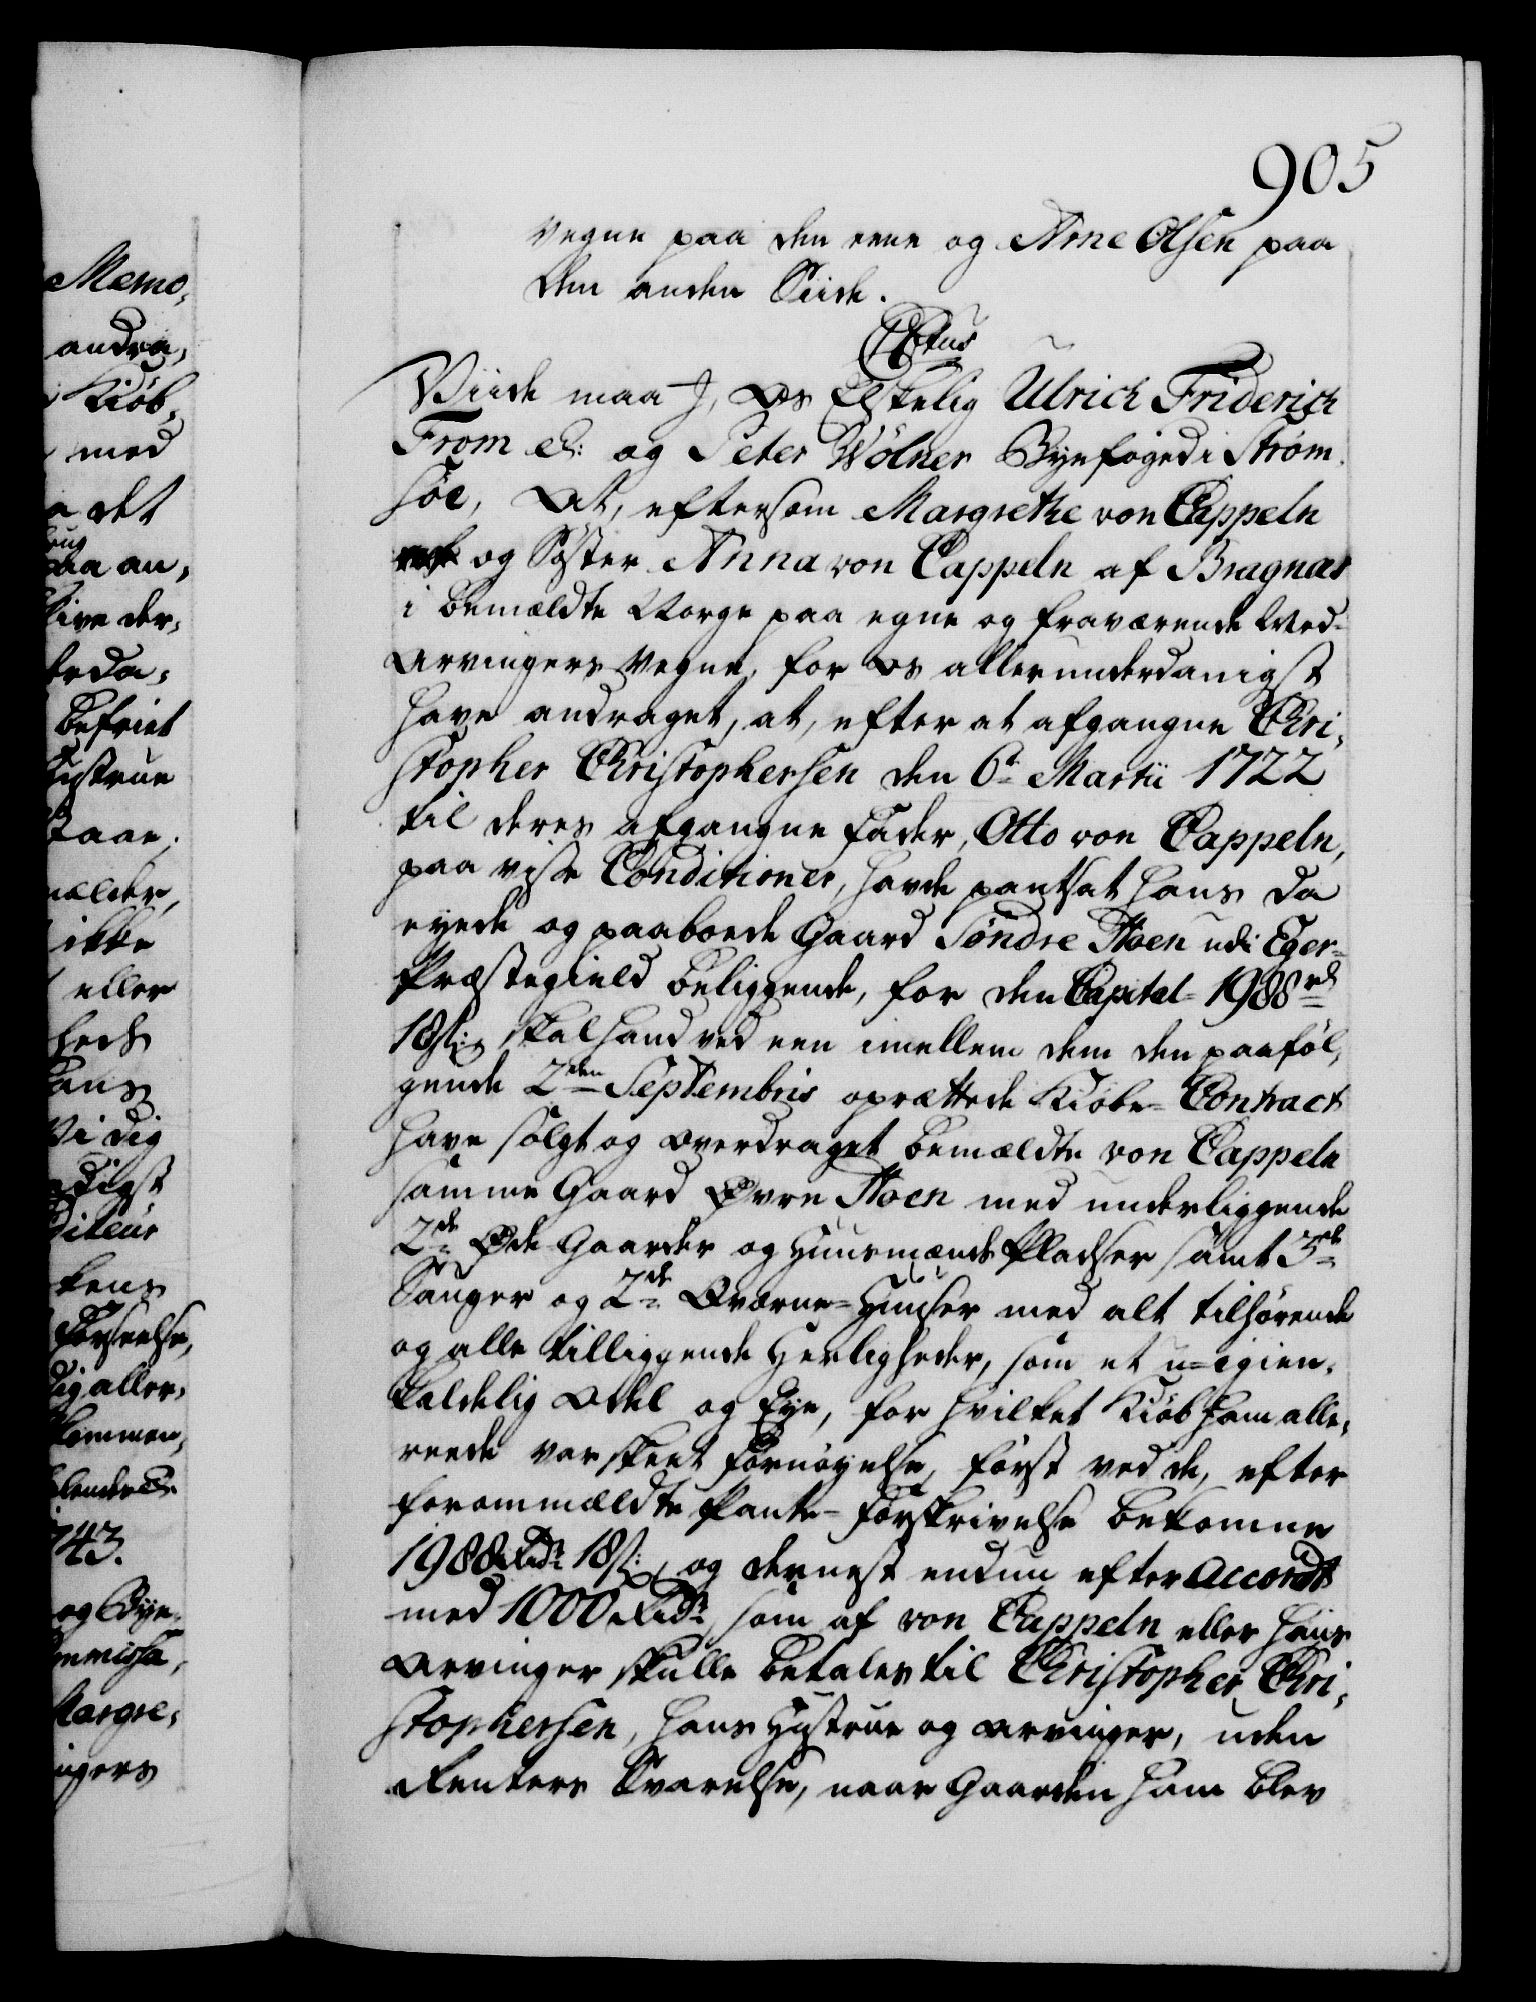 905
Vegne paa den eene og Arne Olsen paa
den anden Siide.
Viide maa, Os Elskelig Ulrich Friderich
From og Peter Wölner Byefoged i Strøm-
söe, At, eftersom Margrethe von Cappeln
og Søster Anna von Cappeln af Bragnæs
i bemældte Norge paa egne og fraværende Med-
Arvingers Vegne, for Os allerunderdanigst
have andraget, at, efter at afgangne Chri-
stopher Christophersen den 6te Martii 1722
til deres afgangne Fader, Otto von Cappeln,
paa visse Conditioner, havde pantsat hans da
eyede og paaboede Gaard Søndre Hoen udi Eger-
Præstegield beliggende, for den Capital 1988 rd
18 s; skal hand ved een imellem dem den paaføl-
gende 2den Septembris oprættede Kiøbe-Contract
have solgt og overdraget bemældte von Cappeln
samme Gaard Øvre Hoen med underliggende
2de Øde Gaarder og Huusmænds Pladser samt 3de
Sauger og 2de Qværne-Huuser med alt tilhørende
og alle tilliggende Herligheder, som et u-igien-
kaldelig Odel og Eye, for hvilket Kiøb ham alle-
reede var skeet Fornøyelse, først ved de, efter
forommældte Pante-Forskrivelse bekomne
1988 Rdr 18 s, og dernest endnu efter Accordt
med 1000 Rdr, som af von Cappeln eller hans
Arvinger skulle betales til Christopher Chri-
stophersen, hans Hustrue og Arvinger, uden
Renters Svarelse, naar Gaarden ham blev
Memo-
andra-
Kiöb-
med
det
paa an-
give der-
befriet
Hustrue
ikke
eller
hans
Vi dig
Forseelse,
dig aller-
43.
og Bye-
ommissa-
Margre-
ingers